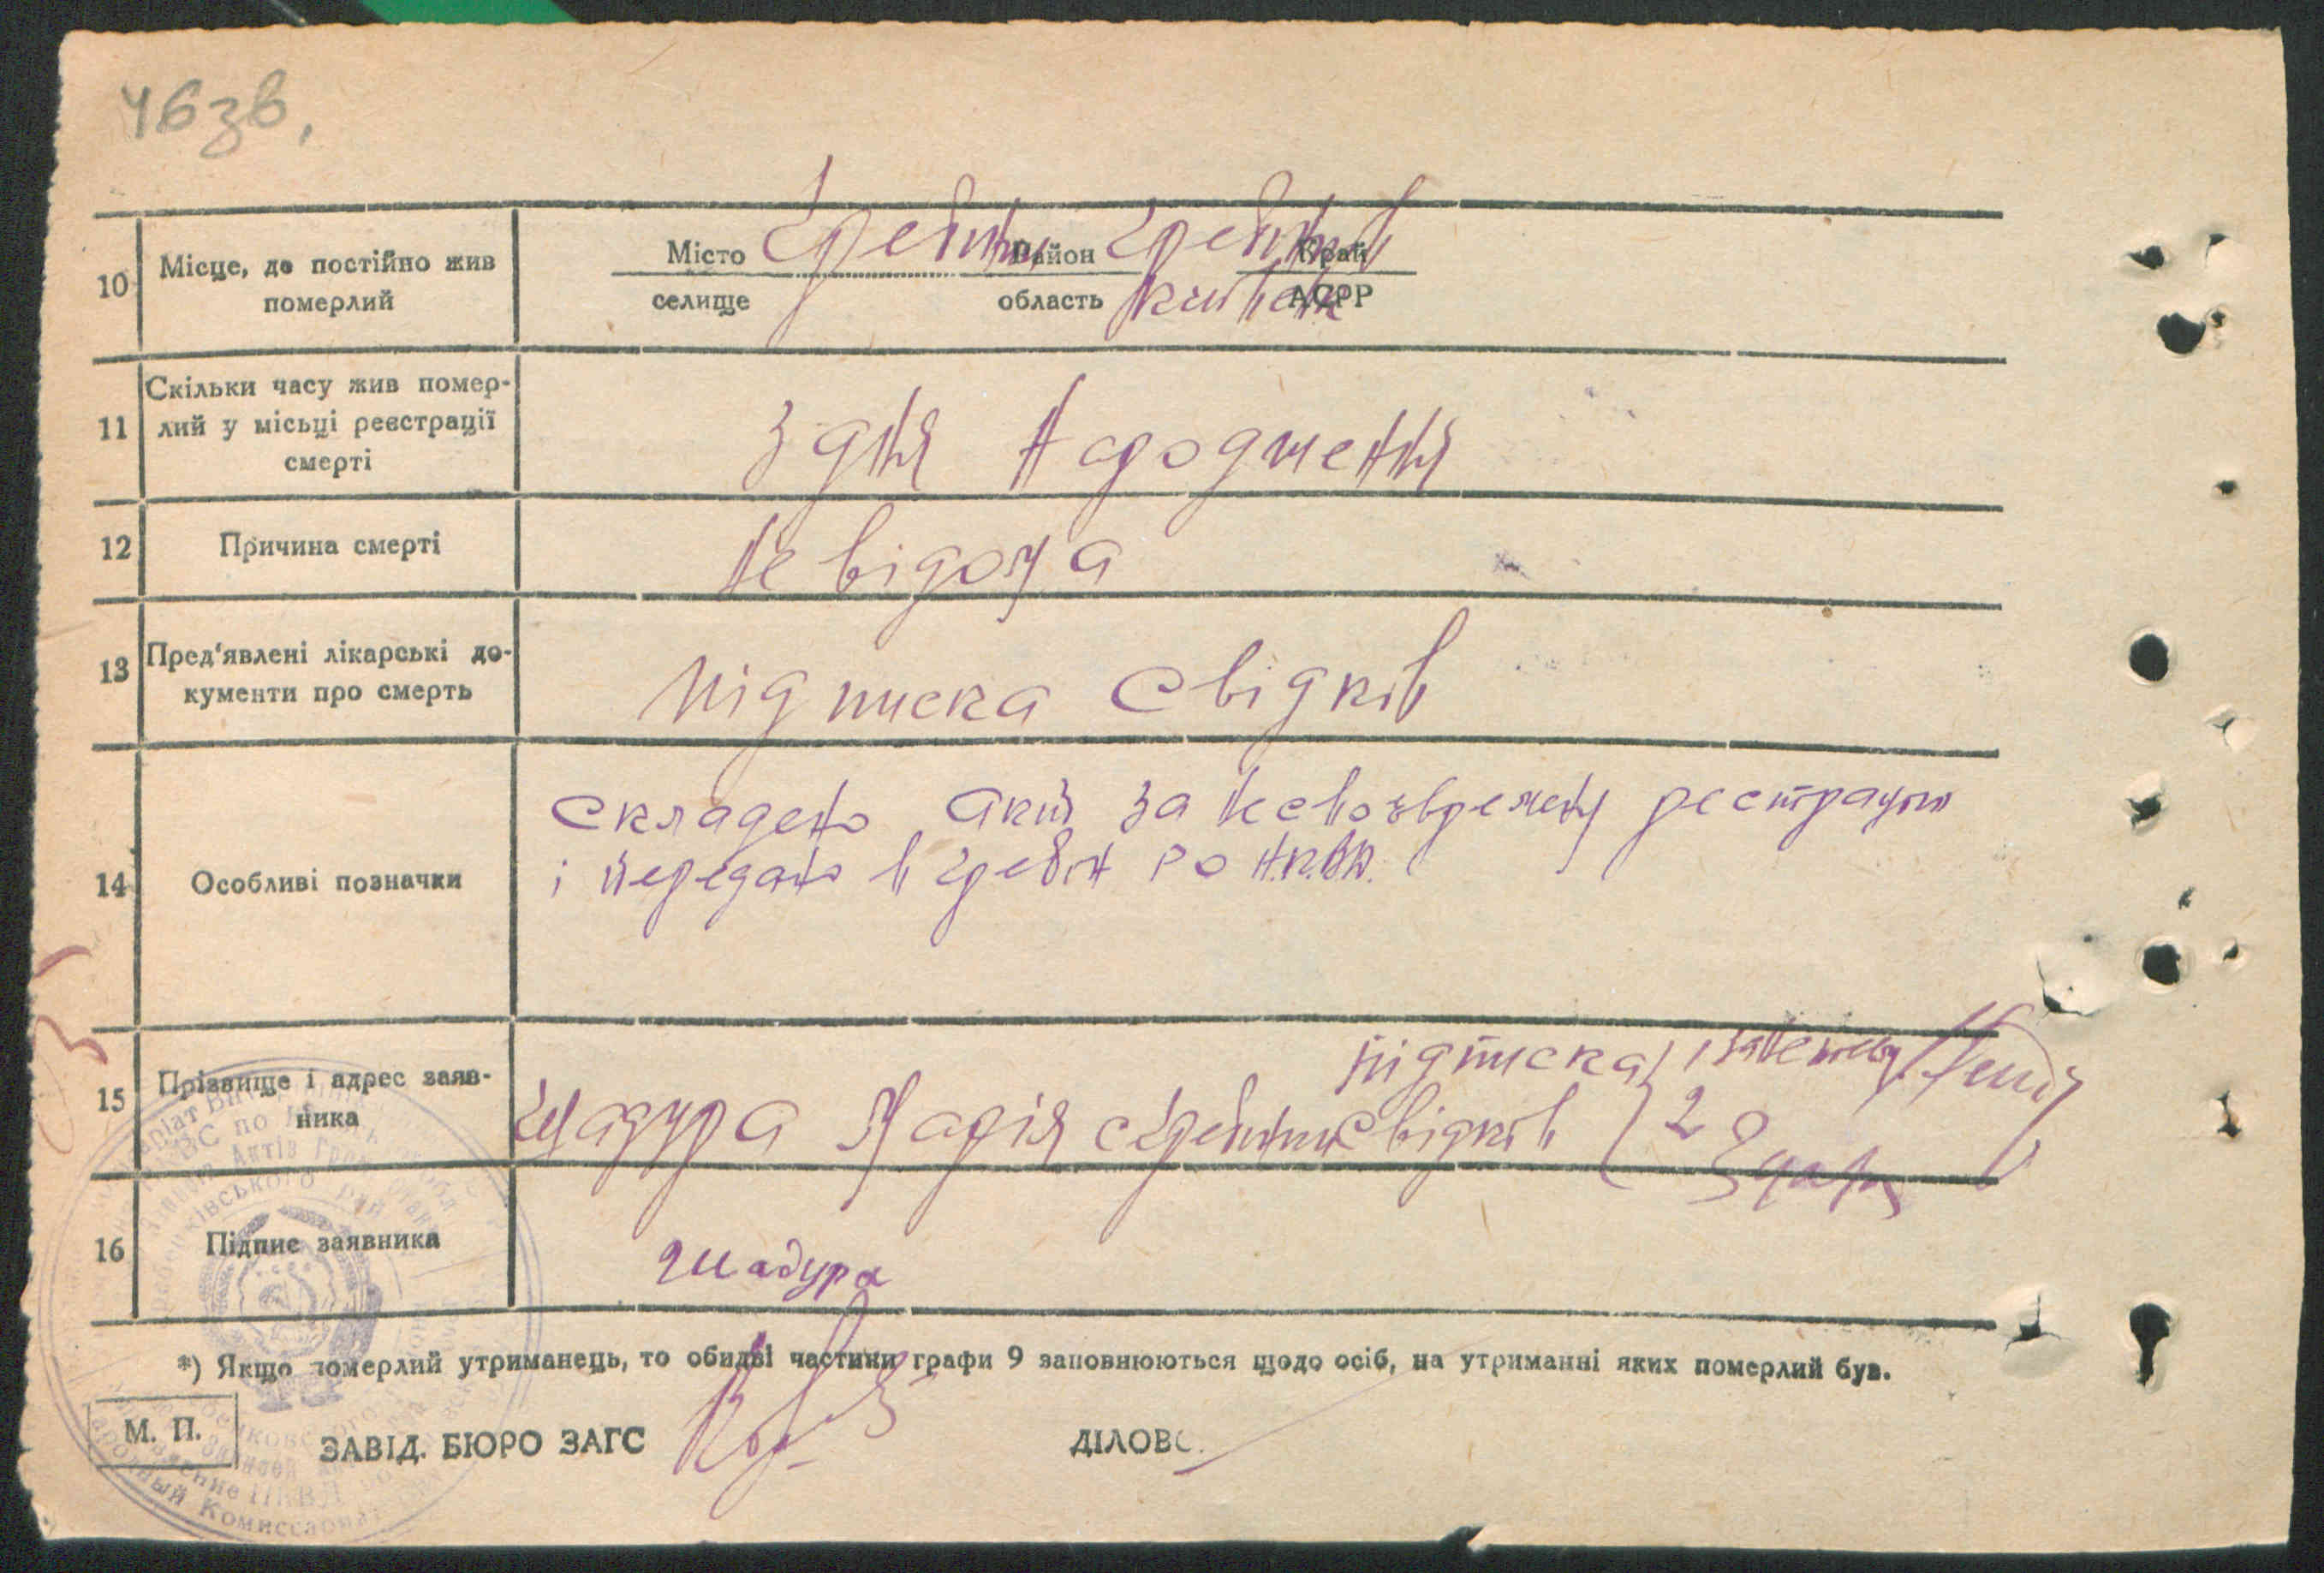 46 зв.
10 Місце, де постійно жив померлий
Місто Гребінки Район Гребінків Край
селище область Київськ АСРР
11 Скільки часу жив помер-
лий у місьці реєстрації
смерті
З дня народження
12 Причина смерті
не відома
13 Пред'явлені лікарські до-
кументи про смерть
підписка свідків
14 Особливі позначки
складено акт за несвоэвремену реєстрацію
і передано в Гребін РО НКВД.
15 Прізвище і адрес заяв-
ника
підписка
Шадура Марія с Гребінки свідків 2
16 Підпис заявника
Шадура
*) Якщо померлий утриманець, то обидві частини графи 9 заповнюються щодо осіб, на утриманні яких померлий був.
М. П.
ЗАВІД. БЮРО ЗАГС
ДІЛОВС.
Народный Комиссариат